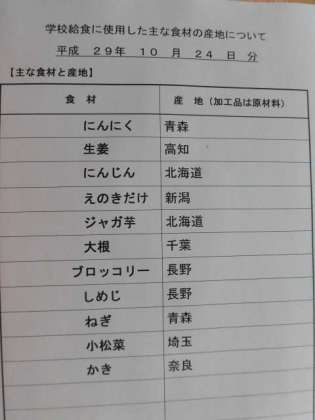 学校給食に使用した主な食材の産地について
平成 29年 10 月 24 日 分
【主な食材と産地】
食 材 産 地(加工品は原材料)
にんにく 青森
生姜 高知
にんじん 北海道
えのきだけ 新潟
ジャガ芋 北海道
大根 千葉
ブロッコリー 長野
しめじ 長野
ねぎ 青森
小松菜 埼玉
かき 奈良